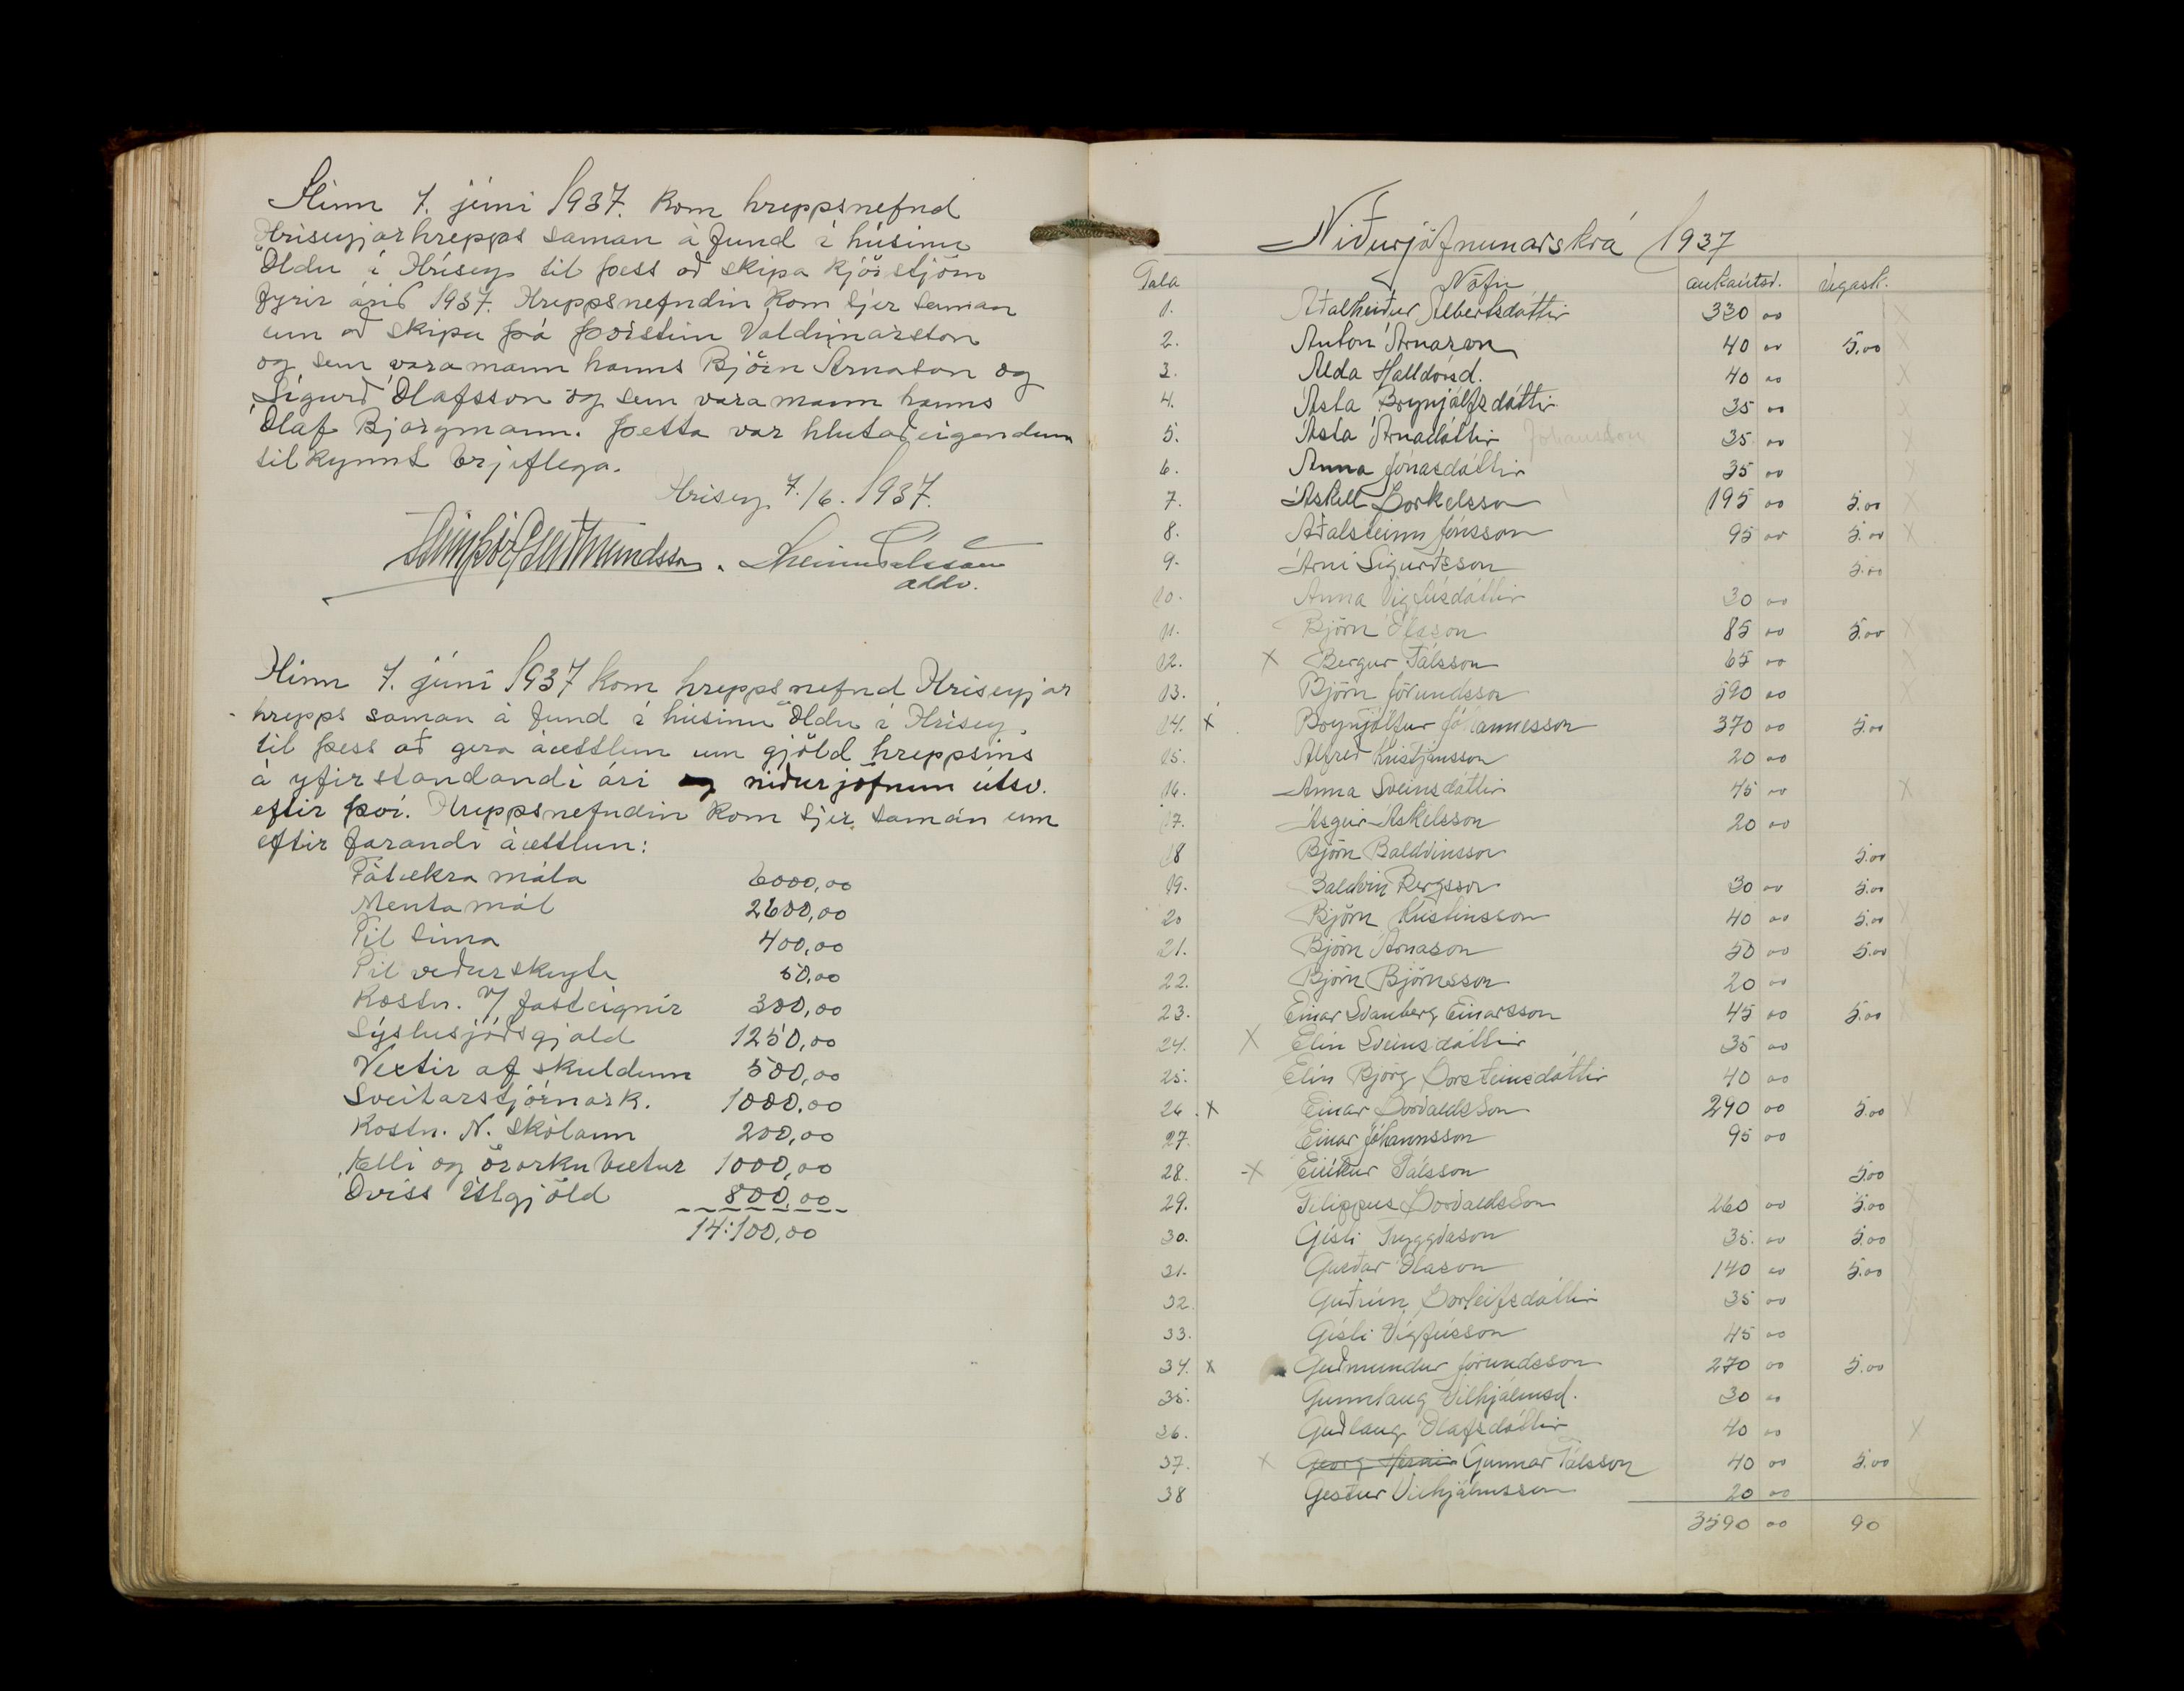 Hinn 7. júní 1937. kom hreppsnefnd
Hríseyjarhrepps saman á fund í húsinu
Öldu í Hrísey til þess að skipa kjörstjórn
fyrir árið 1937. Hreppsnefndin kom sjer saman
um að skipa þá Þorstein Valdimarsson
og sem varamann hanns Björn Árnason og
Sigurð Ólafsson og sem varamann hanns
Ólaf Bjargmann. Þetta var hlutaðeigendum
tilkynnt brjeflega.
Hrísey 7/6. 1937.
oddv.
Hinn 7. júní 1937 kom hreppsnefnd Hríseyjar
hrepps saman á fund í húsinu Öldu í Hrísey,
til þess að gera áætlun um gjöld hreppsins
á yfirstandandi ári og niðurjöfnun útsv.
eftir því. Hreppsnefndin kom sjer saman um
eftir farandi áætlun:
Fátækra mála 6000,00
Mentamál 2600,00
Til síma 400,00
Til veðurskeyta 50,00
Kostn. v/ fasteignir 300,00
Sýslusjóðsgjald 1250,00
Vextir af skuldum 500,00
Sveitarstjórnark. 1000,00
Kostn. N. skólann 200,00
Elli og örorkubætur 1000,00
Óviss útgjöld 800,00
14:100,00
Niðurjöfnunarskrá 1937
Tala Nöfn aukaútsv. vegask.
1. Aðalheiður Albertsdóttir 330 00 x
2. Anton Árnason 40 00 5.00 x
3. Alda Halldórsd. 40 00 x
4. Ásta Brynjólfsdóttir 35 00 x
5. Ásta Árnadóttir Johansson 35 00
6. Anna Jónasdóttir 35 00 x
7. Áskell Þorkelsson 195 00 5.00 x
8. Aðalsteinn Jónsson 95 00 5.00 x
9. Árni Sigurðsson 5.00
10. Anna Vigfúsdóttir 30 00
11. Björn Ólason 85 00 5.00 x
12. x Bergur Pálsson 65 00 x
13. Björn Jörundsson 590 00 x
14. x Brynjólfur Jóhannesson 370 00 5.00
15. Alfreð Kristjánsson 20 00
16. Anna Sveinsdóttir 45 00 x
17. Ásgeir Áskelsson 20 00
18 Björn Baldvinsson 5.00
19. Baldvin Bergsson 30 00 5.00
20 Björn Kristinsson 40 00 5.00 x
21. Björn Árnason 50 00 5.00 x
22. Björn Björnsson 20 00 x
23. Einar Svanberg Einarsson 45 00 5.00 x
24. x Elín Sveinsdóttir 35 00
25. Elín Björg Þorsteinsdóttir 40 00
26. x Einar Þorvaldsson 290 00 5.00 x
27. Einar Jóhannsson 95 00
28. x Eiríkur Pálsson 5.00
29. Filippus Þorvaldsson 260 00 5.00 x
30. Gísli Tryggvason 35. 00 5.00 x
31. Garðar Ólason 140 00 5.00 x
32. Guðrún Þorleifsdóttir 35 00 x
33. Gísli Vigfússon 45 00 x
34. x Guðmundur Jörundsson 270 00 5.00
35. Gunnlaug Vilhjálmsd. 30 00
36. Guðlaug Ólafsdóttir 40 00 x
37. x Gunnar Pálsson 40 00 5.00
38 Gestur Vilhjálmsson 20 00 x
3590 00 90